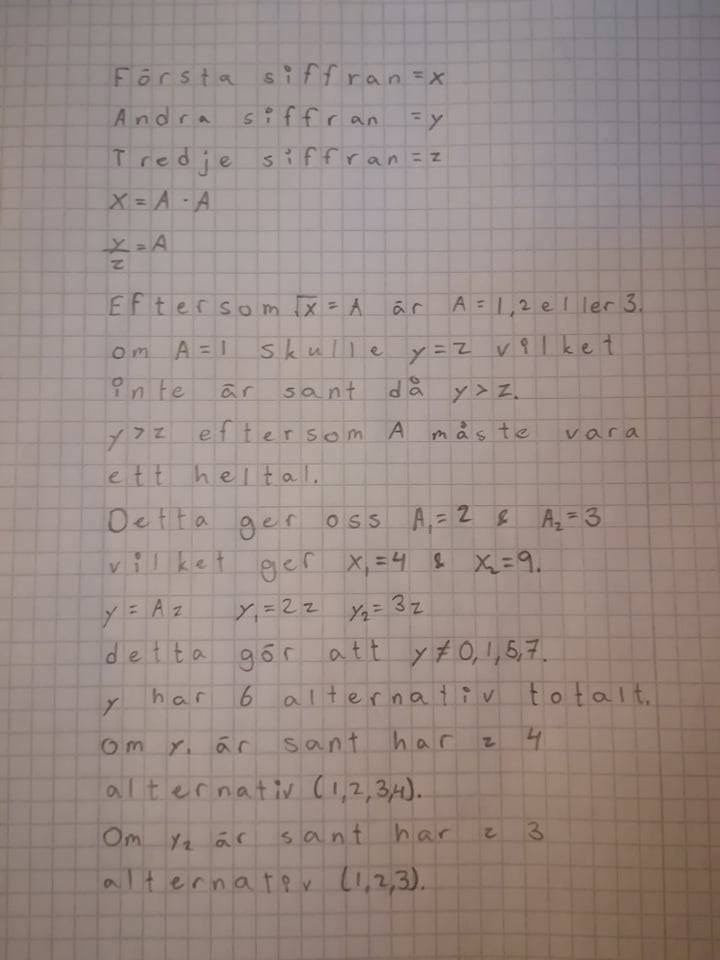 Första siffran = x
Andra siffran = y
Tredje siffran = z
x = A · A
y/z = A
Eftersom √x = A är A = 1,2 eller 3.
om A = 1 skulle y = z vilket
inte är sant då y > z.
y > z eftersom A måste vara
ett heltal.
Detta ger oss A₁ = 2 & A₂ = 3
vilket ger x₁ = 4 & x₂ = 9.
y = Az y₁ = 2z y₂ = 3z
detta gör att y ≠ 0,1,5,7.
y har 6 alternativ totalt.
Om y₁ är sant har z 4
alternativ (1,2,3,4).
Om y₂ är sant har z 3
alternativ (1,2,3).